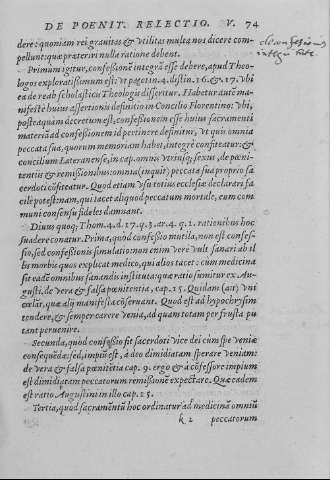 DE POENIT. RELECTIO. V. 74
dere: quoniam rei grauitas & vtilitas multa nos dicere com-
pellunt: quæ præteriri nulla ratione debent.
Primum igitur, confeßionẽ integrã esse debere, apud Theo-
logos exploratißimum est: vt patet in.4.distin.16.&.17. vbi
ea de re ab scholasticis Theologis disseritur. Habetur autẽ ma-
nifestè huius assertionis definitio in Concilio Florentino: vbi,
posteaquàm decretum est, confeßionem esse huius sacramenti
materiã, ad confeßionem id pertinere definitur, vt quis omnia
peccata sua, quorum memoriam habet, integrè confiteatur: &
concilium Lateranense, in cap. omnis vtriusq; sexus, de pœni-
tentiis & remißionibus: omnia (inquit) peccata sua proprio sa
cerdoti cõfiteatur. Quod etiam vsu totius ecclesiæ declarari fa-
cilè potest: nam, qui tacet aliquod peccatum mortale, eum com
muni consensu fideles damnant.
Diuus quoq; Thom.4.d.17.q.3.ar.4.q.1. rationibus hoc
suadere conatur. Prima, quòd confeßio mutila, non est confeß-
sio, sed confeßionis simulatio: non enim verè vult sanari ab il
lis morbis quos explicat medico, qui alios tacet: cum medicina
sit eadẽ omnibus sanandis instituta: quæ ratio sumitur ex Au-
gusti. de vera & falsa pœnitentia, cap.15. Quidam (ait) vni
celãt, quæ alij manifesta cõseruant. Quod est ad hypochrysim
tendere, & semper carere venia, ad quam totam per frusta pu
tant peruenire.
Secunda, quòd confeßio fit sacerdoti vice dei cum spe veniæ
consequẽdæ: sed, impiũ est, à deo dimidiatam sperare veniam:
de vera & falsa pœnitẽtia cap. 9. ergo & à cõfessore impium
est dimidiatam peccatorum remißionẽ expectare. Quæ eadem
est ratio Augustini in illo cap.25.
Tertia, quòd sacramẽtũ hoc ordinatur ad medicinã omniũ
k 2 peccatorum